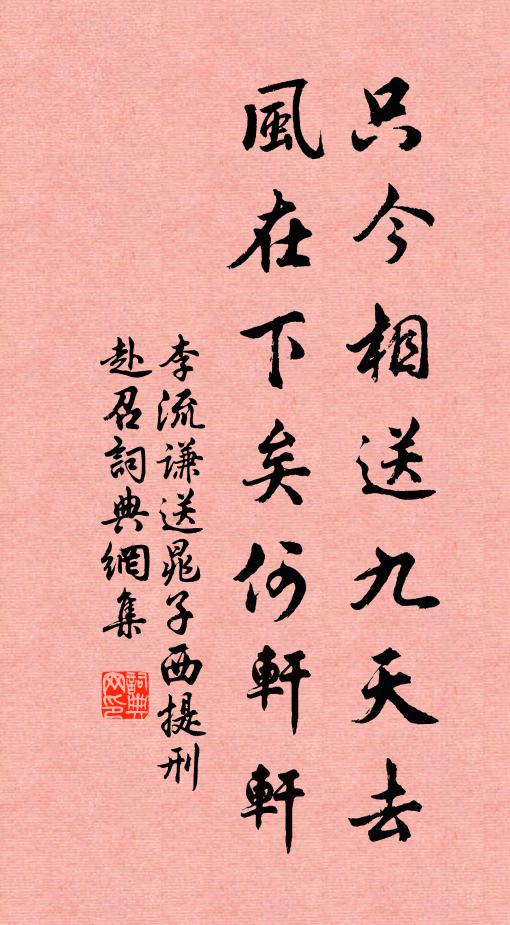 只今相送九天去
風在下矣何軒軒
李流謙送晁子西提刑
赴召詞典網集
詞典網印